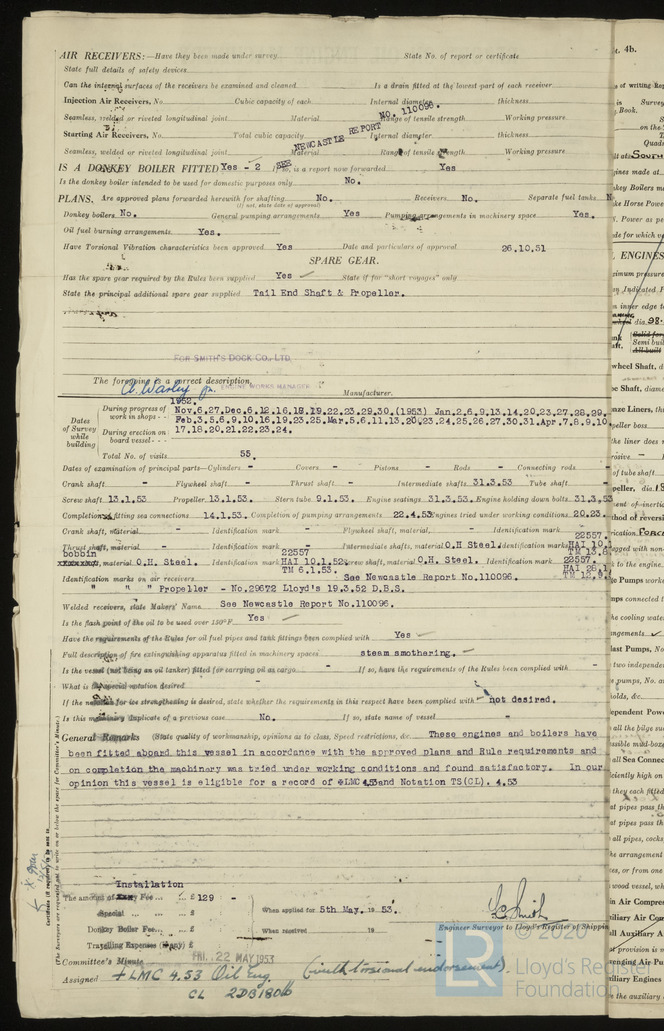 AIR RECEIVERS:—Have they been made under survey State No. of report or certificate
State full details of safety devices
Can the internal surfaces of the receivers be examined and cleaned Is a drain fitted at the lowest part of each receiver
Injection Air Receivers, No. Cubic capacity of each Internal diameter thickness
Seamless, welded or riveted longitudinal joint Material Range of tensile strength Working pressure
Starting Air Receivers, No. Total cubic capacity Internal diameter thickness
SEE NEWCASTLE REPORT NO. 110096.
Seamless, welded or riveted longitudinal joint Material Range of tensile strength Working pressure
IS A DONKEY BOILER FITTED Yes - 2 If so, is a report now forwarded Yes
Is the donkey boiler intended to be used for domestic purposes only No.
PLANS. Are approved plans forwarded herewith for shafting No. Receivers No. Separate fuel tanks
(If not, state date of approval)
Donkey boilers No. General pumping arrangements Yes Pumping arrangements in machinery space Yes.
Oil fuel burning arrangements. Yes.
Have Torsional Vibration characteristics been approved Yes Date and particulars of approval 26.10.51
SPARE GEAR.
Has the spare gear required by the Rules been supplied Yes State if for "short voyages" only
State the principal additional spare gear supplied Tail End Shaft & Propeller.
FOR SMITH'S DOCK CO., LTD.
The foregoing is a correct description,
ENGINE WORKS MANAGER Manufacturer.
Dates of Survey while building
1952.
During progress of work in shops - - Nov.6,27.Dec.6,12,16,18,19,22,23,29,30.(1953) Jan.2,6,9,13,14,20,23,27,28,29.
Feb.3,5,6,9,10,16,19,23,25.Mar.5,6,11,13,20,23,24,25,26,27,30,31.Apr.7,8,9,10.
During erection on board vessel - - - 17,18,20,21,22,23,24.
Total No. of visits 55.
Dates of examination of principal parts—Cylinders - Covers - Pistons - Rods - Connecting rods
Crank shaft - Flywheel shaft - Thrust shaft - Intermediate shafts 31.3.53 Tube shaft
Screw shaft 13.1.53 Propeller 13.1.53. Stern tube 9.1.53. Engine seatings 31.3.53. Engine holding down bolts. 31.3.53
Completion of fitting sea connections 14.1.53. Completion of pumping arrangements 22.4.53 Engines tried under working conditions 20.23
Crank shaft, material - Identification mark - Flywheel shaft, material - Identification mark
22557.
Thrust shaft, material - Identification mark - Intermediate shafts, material O.H Steel. Identification marks HAI 10.
bobbin 22557 TM 13.
material O.H. Steel. Identification mark HAI 10.1.52 Screw shaft, material O.H. Steel. Identification mark 22557.
TM 6.1.53. HAI 26.1
Identification marks on air receivers See Newcastle Report No.110096. TM 12.
" " " Propeller - No.29672 Lloyd's 19.3.52 D.B.S.
Welded receivers, state Makers' Name See Newcastle Report No.110096.
Is the flash point of the oil to be used over 150°F Yes
Have the requirements of the Rules for oil fuel pipes and tank fittings been complied with Yes
Full description of fire extinguishing apparatus fitted in machinery spaces steam smothering.
Is the vessel (not being an oil tanker) fitted for carrying oil as cargo - If so, have the requirements of the Rules been complied with -
What is the special notation desired
If the notation for ice strengthening is desired, state whether the requirements in this respect have been complied with - not desired.
Is this machinery duplicate of a previous case No. If so, state name of vessel -
General Remarks (State quality of workmanship, opinions as to class, Speed restrictions, &c. These engines and boilers have
been fitted aboard this vessel in accordance with the approved plans and Rule requirements and
on completion the machinery was tried under working conditions and found satisfactory. In our
opinion this vessel is eligible for a record of +LMC 4.53 and Notation TS(CL). 4.53
Installation
The amount of Fee ... £ 129 -
Special ... £
When applied for 5th May. 19 53.
Donkey Boiler Fee... £
When received 19
Travelling Expenses (if any) £
Engineer Surveyor to Lloyd's Register of Shipping
Committee's Minute FRI. 22 MAY 1953
Assigned + LMC 4.53 Oil Eng. (with torsional endorsement).
CL 2DB 180 lb
(The Surveyors are requested not to write on or below the space for Committee's Minute.)
4b.
© 2020
Lloyd's Register
Foundation